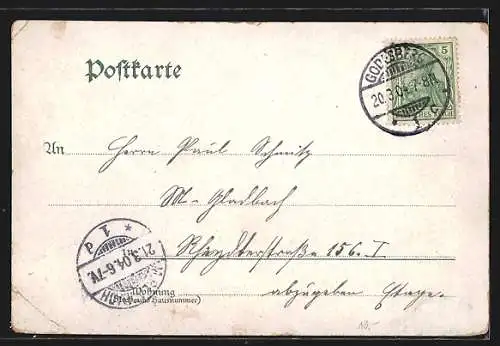 Postkarte
GODESBERG
20.3.04.7-8N.
5
An Herrn Paul Schmitz
M-Gladbach
Rheydterstraße 156.I
abzugeben Etage.
* 1 d
21.3.04.6-7V.
Wohnung
(Straße und Hausnummer)
10.-